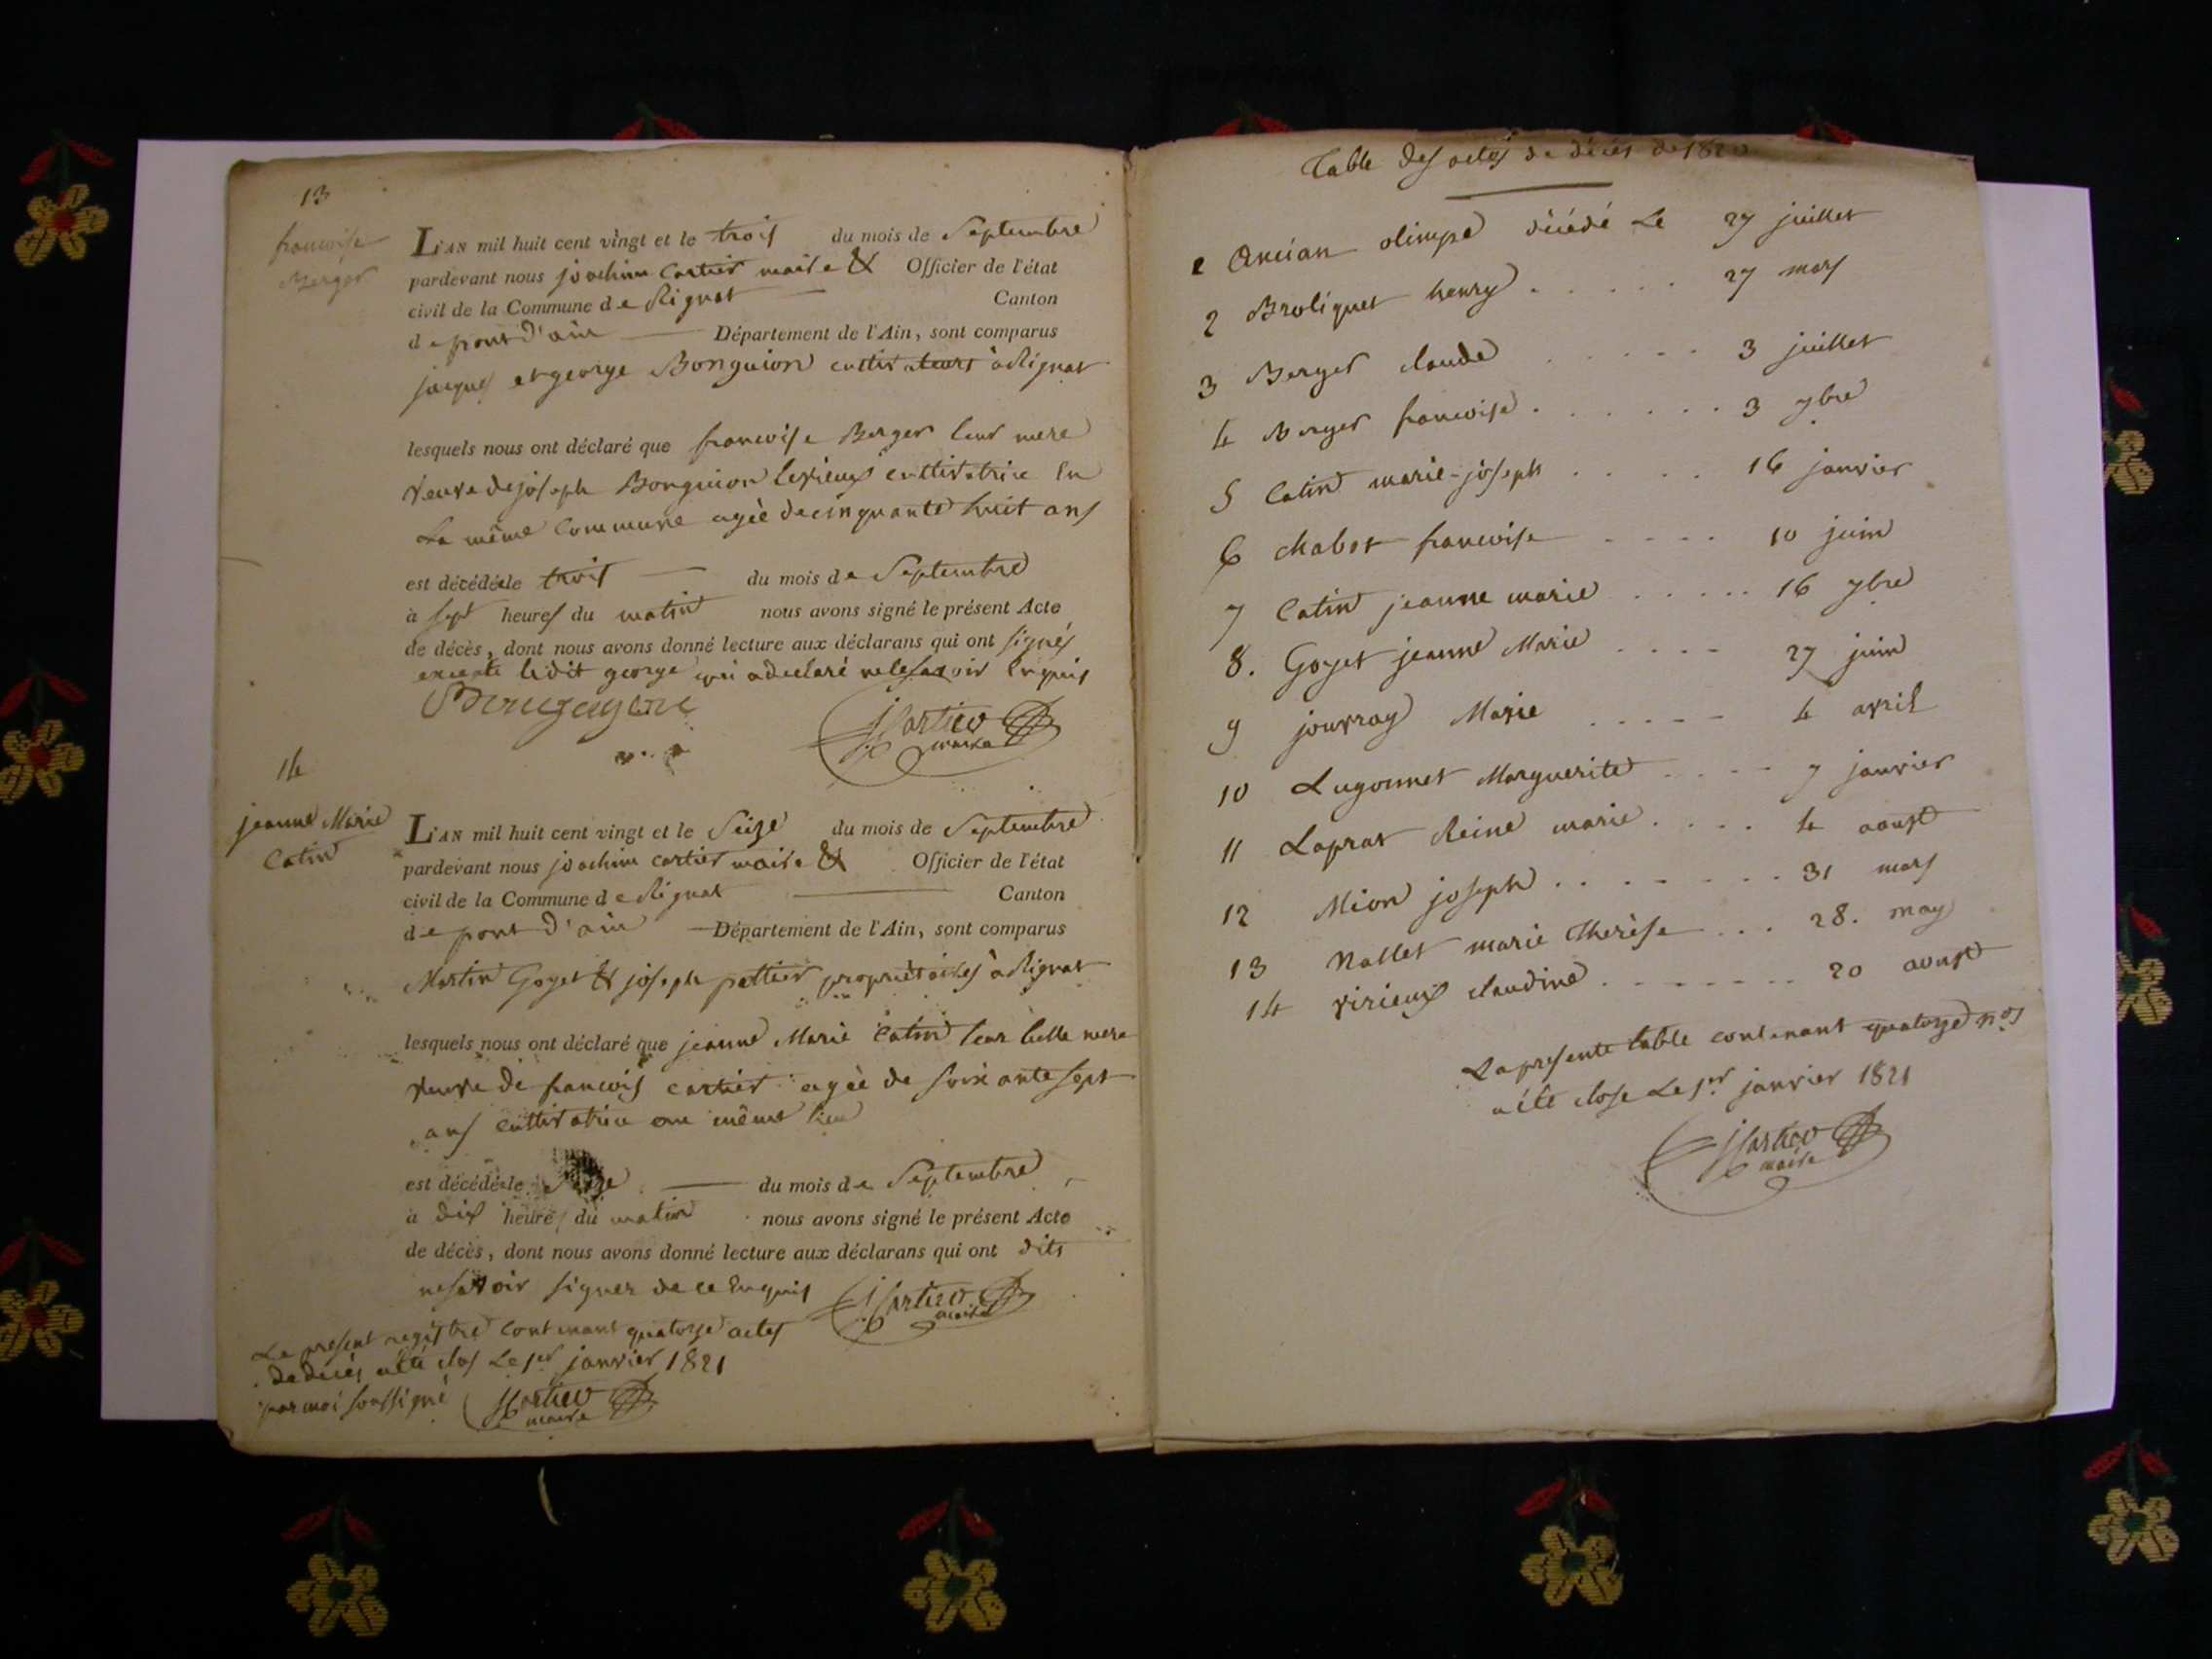 13
francoise
Berger
L'AN mil huit cent vingt et le trois du mois de Septembre
pardevant nous joachim Cartier maire & Officier de l'état
civil de la Commune de Rignat Canton
de pont d'ain Département de l'Ain, sont comparus
jacques et george Bonguion cultivateurs à Rignat
lesquels nous ont déclaré que francoise Berger leur mere
veuve de joseph Bonguion levieux cultivatrice En
La même Commune agéè de cinquante huit ans
est décédée le trois du mois de Septembre
à sept heures du matin nous avons signé le présent Acte
de décès, dont nous avons donné lecture aux déclarans qui ont signés
excepté ledit george qui a declaré ne le savoir Enquis
JCartier
maire
14
jeanne Marie
Catin
L'AN mil huit cent vingt et le Seize du mois de Septembre
pardevant nous joachim cartier maire & Officier de l'état
civil de la Commune de Rignat Canton
de pont d'ain Département de l'Ain, sont comparus
Martin Goyet & joseph pettier propriétaires à Rignat
lesquels nous ont déclaré que jeanne Marie Catin leur belle mere
veuve de francois cartier agéè de soixante sept
ans cultivatrice au même lieu
est décédée le Seize du mois de Septembre
à dix heures du matin nous avons signé le présent Acte
de décès, dont nous avons donné lecture aux déclarans qui ont dits
ne savoir signer de ce Enquis
JCartier
maire
Le present registre contenant quatorze actes
de decés a été clos Le 1er janvier 1821
par moi soussigné
JCartier
maire
Table des actes de décés de 1820
1 Ancian olimpe décédé Le 27 juillet
2 Broliquet henry . . . . . 27 mars
3 Berger claude . . . . . 3 juillet
4 Berger francoise . . . . . . 3 7bre
5 Catin marie-joseph . . . . 16 janvier
6 Chabot francoise . . . . 10 juin
7 Catin jeanne marie . . . . . 16 7bre
8. Goyet jeanne Marie . . . . 27 juin
9 jouvray Marie . . . . . 4 avril
10 Lugonnet Marguerite . . . . 7 janvier
11 Laprat Reine marie . . . . 4 aoust
12 Mion joseph . . . . . . . 31 mars
13 Nallet marie Therèse . . . 28. may
14 virieux claudine . . . . . . . 20 aoust
La presente table contenant quatorze nos
a été close Le 1er janvier 1821
JCartier
maire